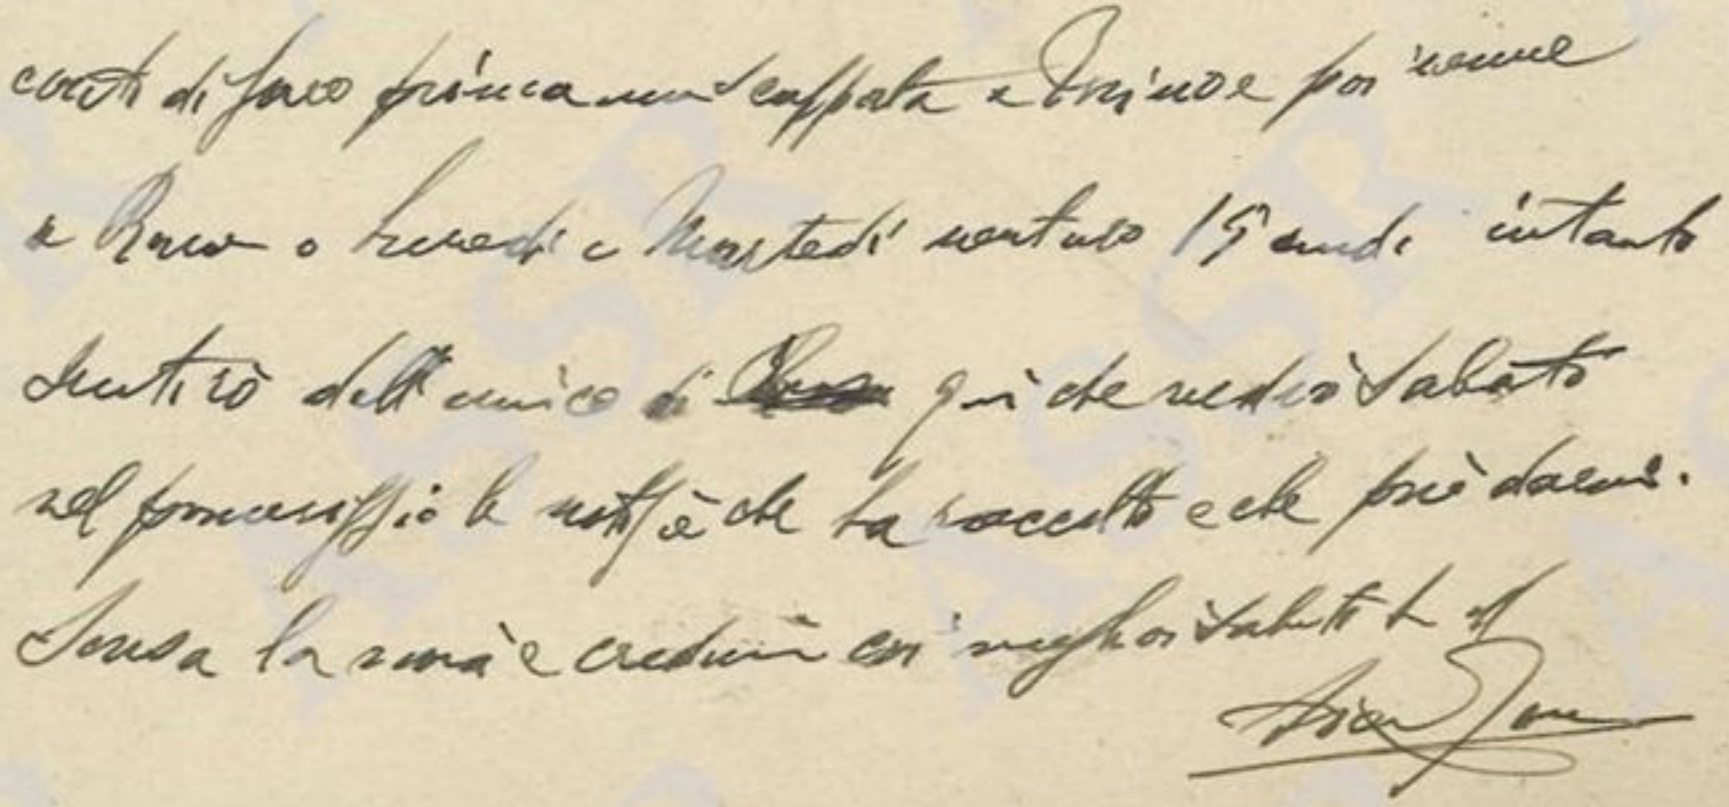 conti di fare prima una scappata a Torino e poi venire
a Roma o Lunedì o Martedì venturo 15 and. intanto
sentirò dall'amico di qui che vedrò Sabato
nel pomeriggio le notizie che ha raccolto e che può darmi.
Scusa la noia e credimi coi migliori saluti